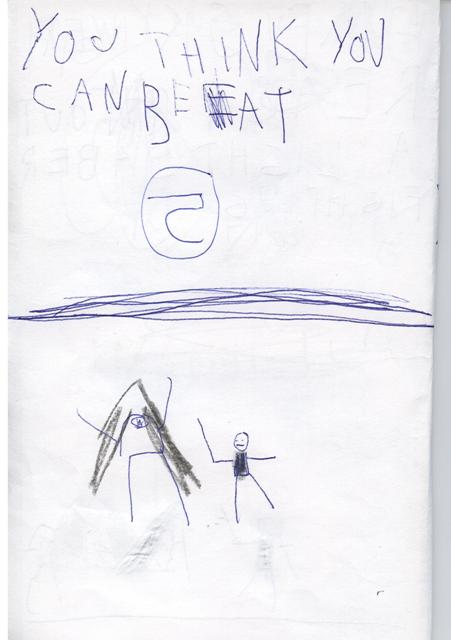 YOU THINK YOU
CAN BEAT
2